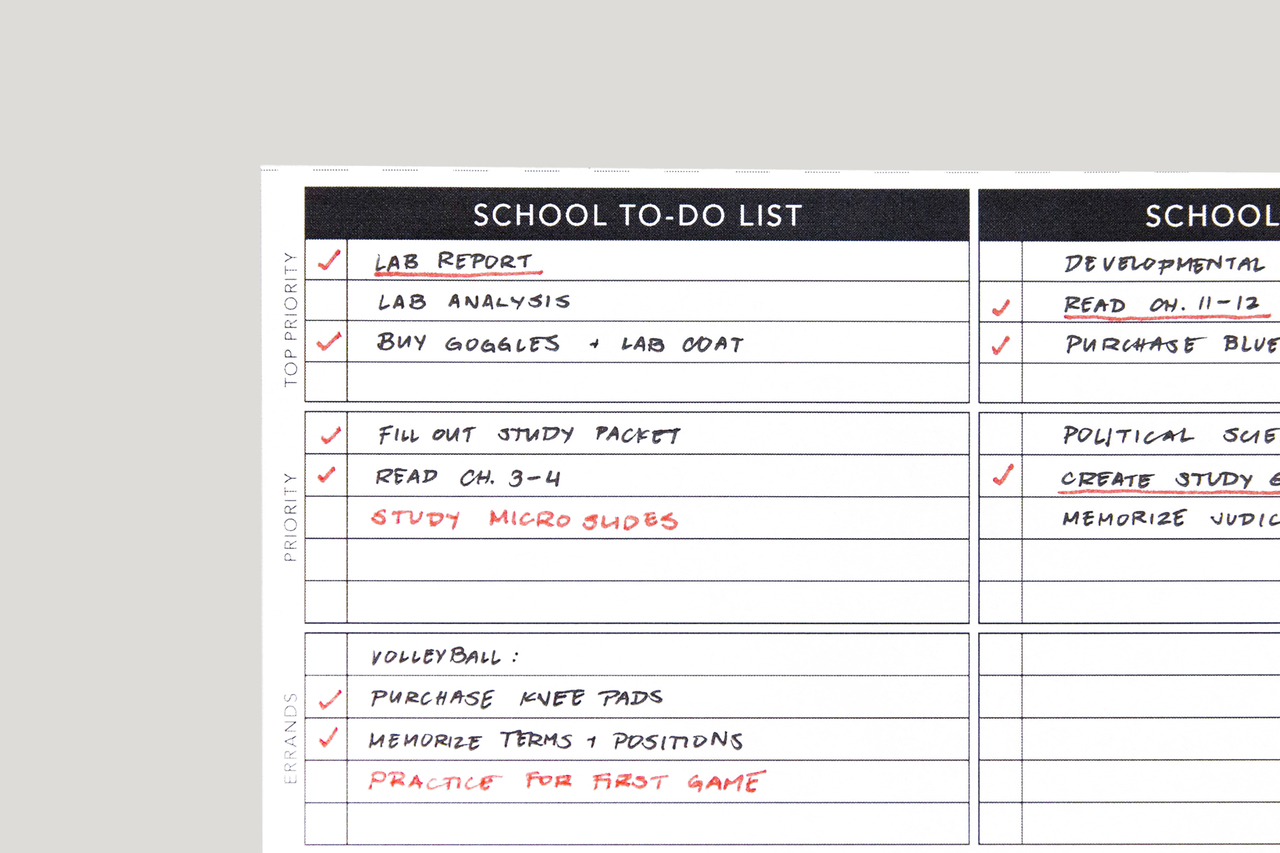 SCHOOL TO-DO LIST
TOP PRIORITY
LAB REPORT
LAB ANALYSIS
BUY GOGGLES + LAB COAT
PRIORITY
FILL OUT STUDY PACKET
READ CH. 3-4
STUDY MICRO SLIDES
ERRANDS
VOLLEYBALL:
PURCHASE KNEE PADS
MEMORIZE TERMS + POSITIONS
PRACTICE FOR FIRST GAME
SCHOOL
DEVELOPMENTAL
READ CH. 11-12
PURCHASE BLUE
POLITICAL
CREATE STUDY
MEMORIZE